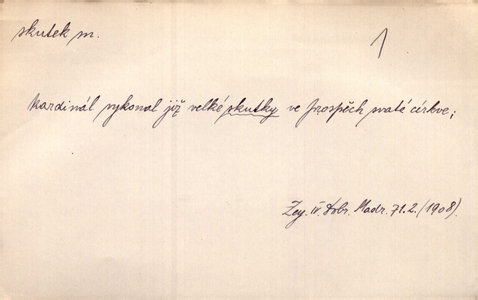 skutek m.
1
kardinál vykonal již velké skutky ve prospěch svaté církve;
Zey. IV. Dobr. Madr. 71.2. (1908).